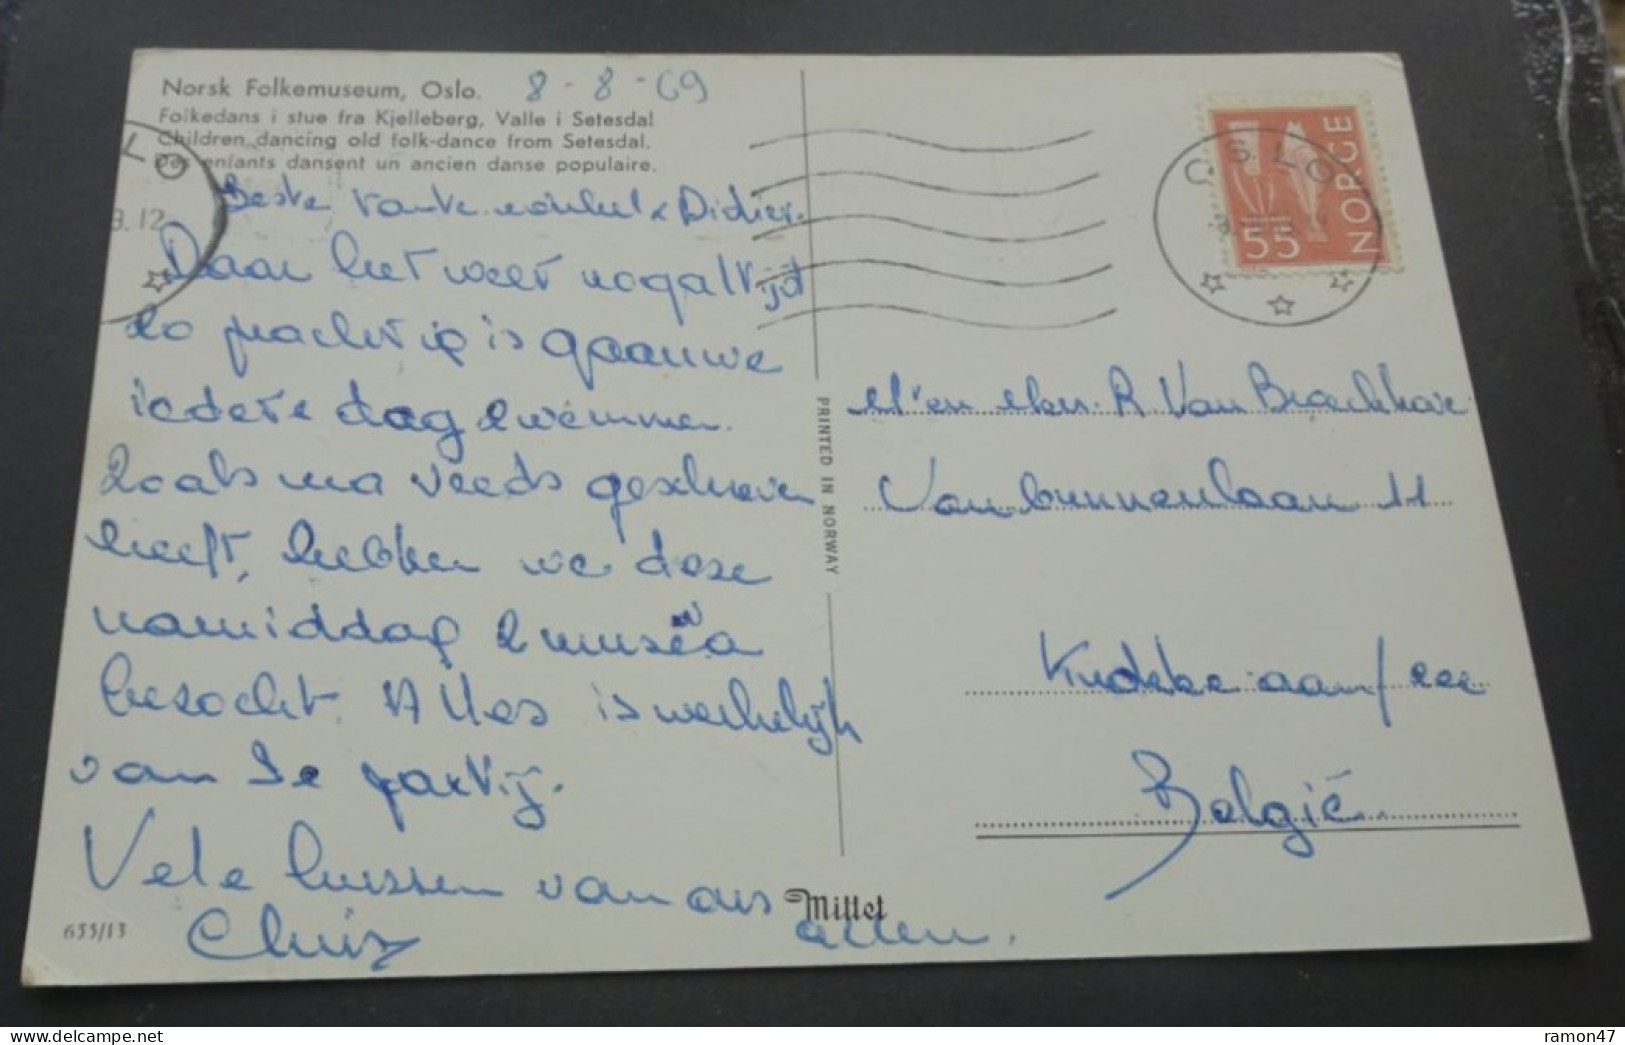 Norsk Folkemuseum, Oslo.
8-8-69
Folkedans i stue fra Kjelleberg, Valle i Setesdal
Children dancing old folk-dance from Setesdal.
Des enfants dansent un ancien danse populaire.
Beste Tante nonkel & Didier.
Daar het weer nog altijd
zo prachtig is gaan we
iedere dag zwemmen.
Zoals ma reeds geschreven
heeft, hebben we deze
namiddag 2 musea
bezocht. Alles is werkelijk
van 1e partij.
Vele kussen van ons
allen.
653/13
Mittet
PRINTED IN NORWAY
OSLO
9.12
NORGE
55
OSLO
R Van Broeckhove
11
Knokke aan/zee
België.
ramon47